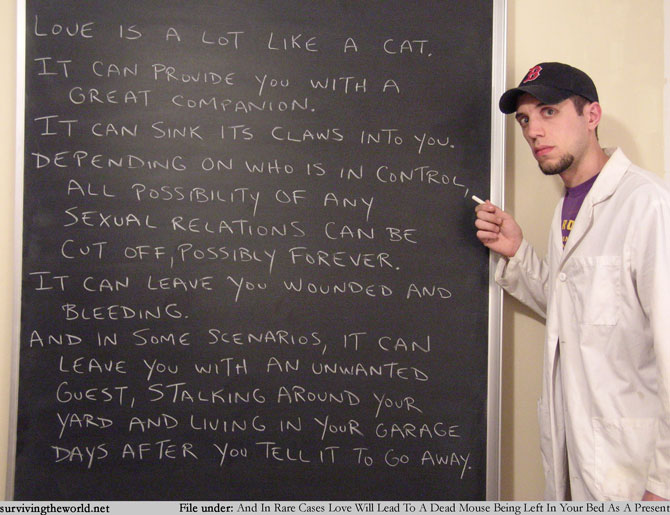 LOVE IS A LOT LIKE A CAT.
IT CAN PROVIDE YOU WITH A
GREAT COMPANION.
IT CAN SINK ITS CLAWS INTO YOU.
DEPENDING ON WHO IS IN CONTROL,
ALL POSSIBILITY OF ANY
SEXUAL RELATIONS CAN BE
CUT OFF, POSSIBLY FOREVER.
IT CAN LEAVE YOU WOUNDED AND
BLEEDING.
AND IN SOME SCENARIOS, IT CAN
LEAVE YOU WITH AN UNWANTED
GUEST, STALKING AROUND YOUR
YARD AND LIVING IN YOUR GARAGE
DAYS AFTER YOU TELL IT TO GO AWAY.
B
survivingtheworld.net
File under: And In Rare Cases Love Will Lead To A Dead Mouse Being Left In Your Bed As A Present